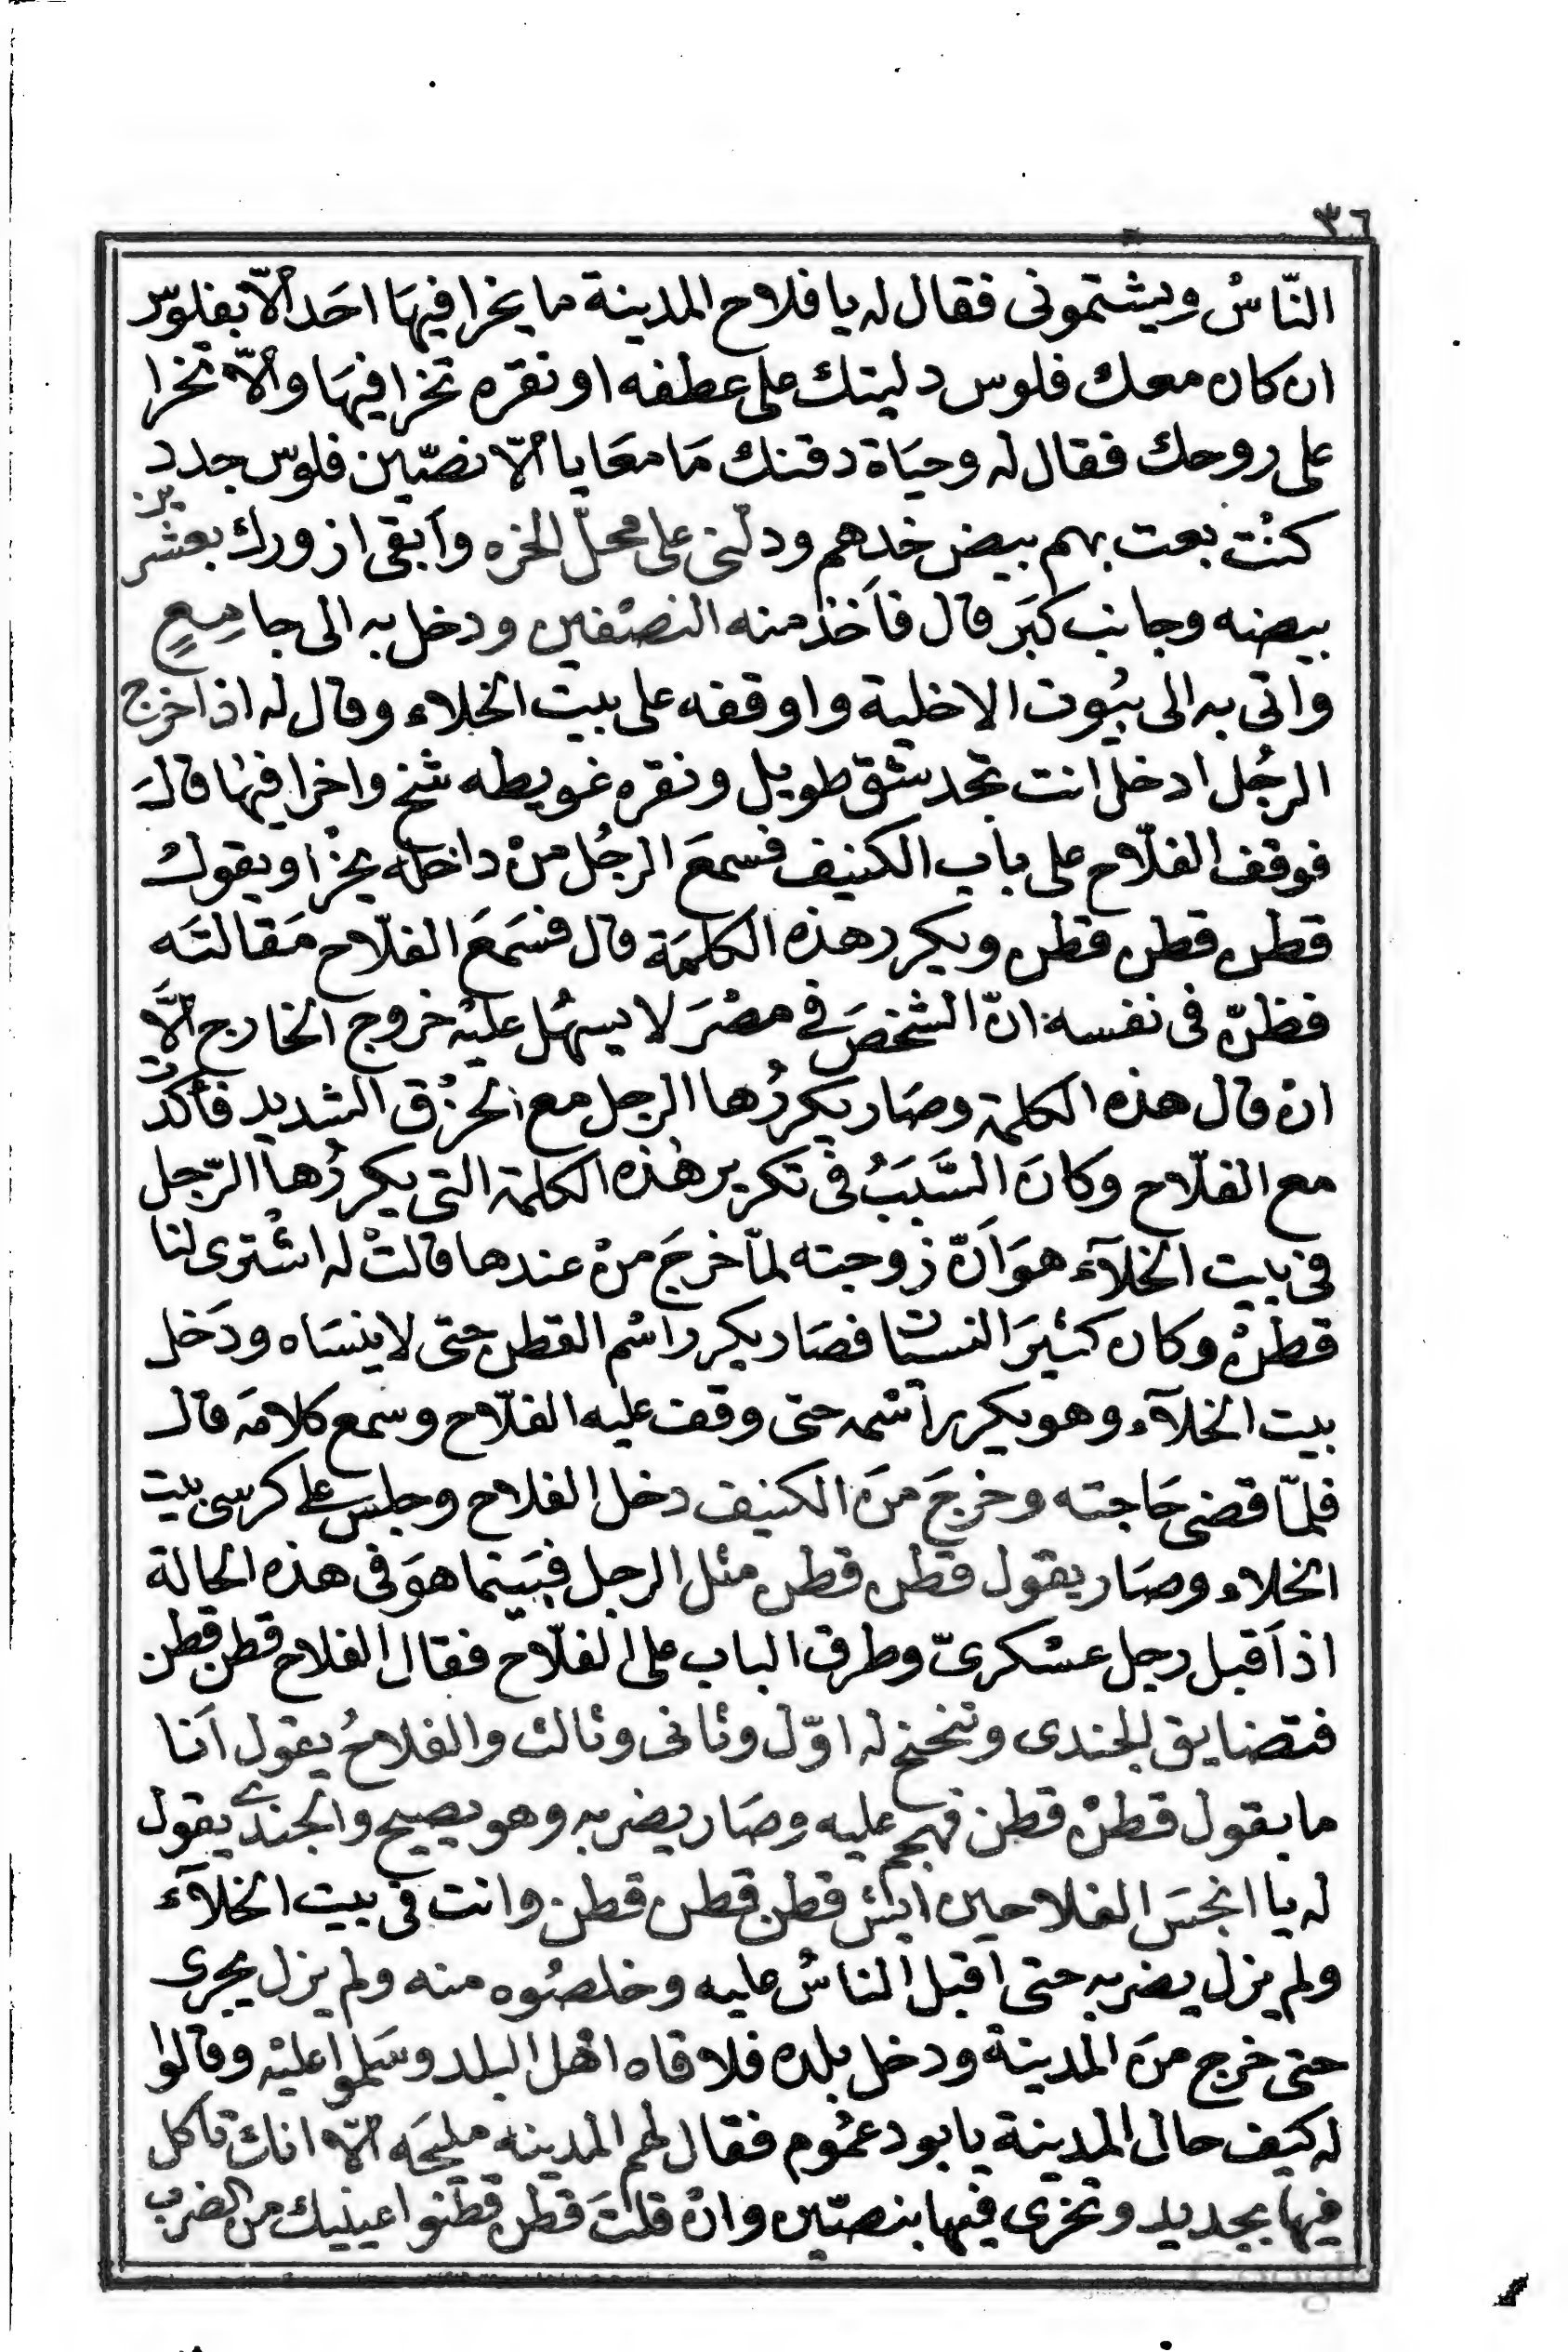 ٣٦
النّاسُ ويشتموني فقال له يا فلاح المدينة ما يخرا فيهَا احَد ألاّ بفلوس
ان كان معك فلوس دليتك على عطفه او نقره تخرا فيهَا وألاّ تخرا
على روحك فقال له وحيَاة دقنك مَا معَايا ألاّ نصّين فلوس جدد
كنُت بعت بهم بيض خدهم ودلّني على محلّ الخره وأبقى ازورك بعشرين
بيضه وجانب كبَر قال فأخذ منه النصْفين ودخل به الى جامِعٍ
واتى به الى بيُوت الاخلية واوقفه على بيت الخلاء وقال له اذا خرج
الرجُل ادخل انت تجد شق طويل ونقره غويطه شخ واخرا فيها قال
فوقف الفلّاح على باب الكنيف فسمعَ الرجُل منْ داخله يخْرا ويقول
قطن قطن قطن ويكرر هذه الكلمَة قال فسَمعَ الفلّاح مَقالتَه
فظنّ في نفسه انّ الشخصَ في مصْرَ لا يسهُل عليْه خروج الخارج ألاَّ
انْ قال هذه الكلمة وصَار يكررُها الرجل مع الحزُق الشديد فأكدت
مع الفلّاح وكانَ السَّبَبُ في تكرير هٰذه الكلمة التي يكررُها الرّجل
في بيت الخلآء هوَ أنّ زوجته لمّا خرجَ منْ عندها قالتْ له اشْترى لنا
قطنْ وكان كثيرَ النسيان فصَار يكرر اسْم القطن حتى لا ينسَاه ودَخل
بيت الخلآء وهو يكرر اسْمه حتى وقف عليه الفلّاح وسمع كلامَه قال
فلمّا قضى حَاجته وخرجَ منَ الكنيف دخل الفلاح وجلس على كرسى بيت
الخلاء وصَار يقول قطن قطن مثل الرجل فبَينما هوَ في هذه الحالة
اذ أقبل رجل عسْكرىّ وطرق الباب على الفلّاح فقال الفلاح قطن قطن
فتضايق الجندى وتنحنح له اوّل وثانى وثالث والفلاحُ يقول أنا
ما بقول قطنْ قطن فهجم عليه وصَار يضربه وهو يصيح والجندي يقول
له يا انجسَ الفلاحين ايش قطن قطن قطن وانت في بيت الخلآء
ولم يزل يضربه حتى اقبل الناسُ عليه وخلصُوه منه ولم يزل يجرى
حتى خرج منَ المدينة ودخل بلده فلاقاه اهْل البلد وسَلموا عليْه وقالوا
له كيَف حال المدينة يابو دعمُوم فقال لهم المدينه مليحَه ألاّ انك تاكل
فيها بجديد وتخرى فيها بنصّين وانْ قلتَ قطن قطّنوا عينيك من الضرب